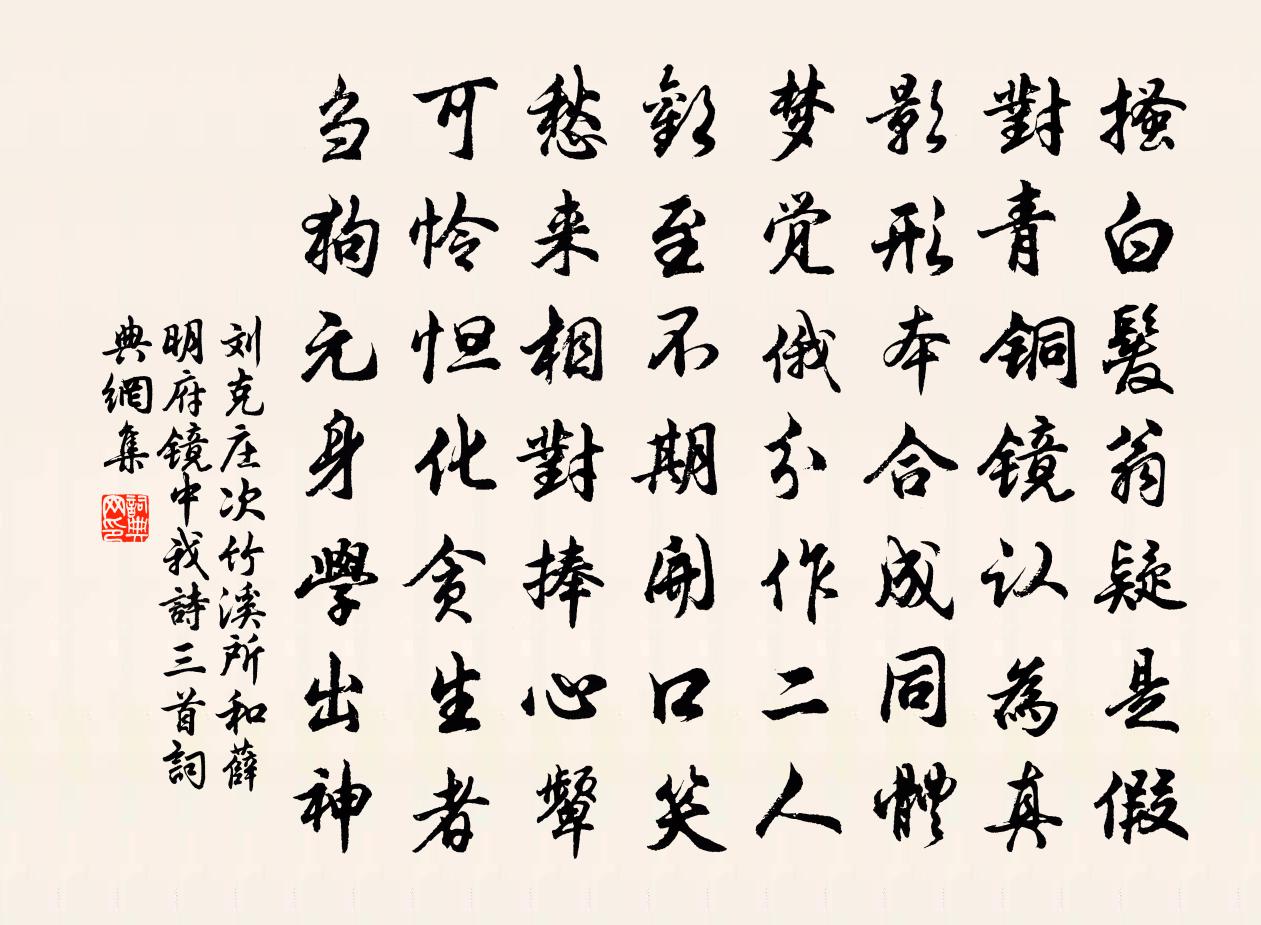 搔白髮翁疑是假
對青銅镜认為真
影形本合成同體
梦觉俄分作二人
歡至不期開口笑
愁来相對捧心顰
可怜怛化贪生者
刍狗元身學出神
刘克庄次竹溪所和薛
明府镜中我詩三首詞
典網集
詞典
网印